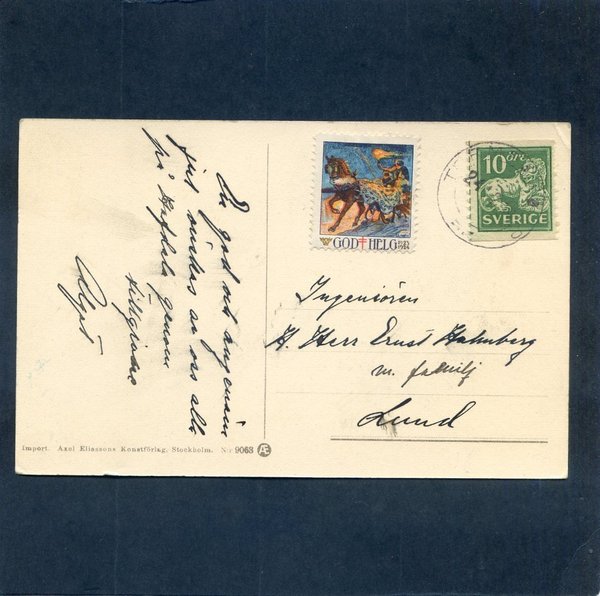 En god och angenäm
jul önskas av oss alla
på
genom
10 öre
SVERIGE
GOD HELG
Ingeniören
H. Herr Ernst Hahnberg
m. familj
Lund
Import. Axel Eliassons Konstförlag, Stockholm. No 9063 Æ